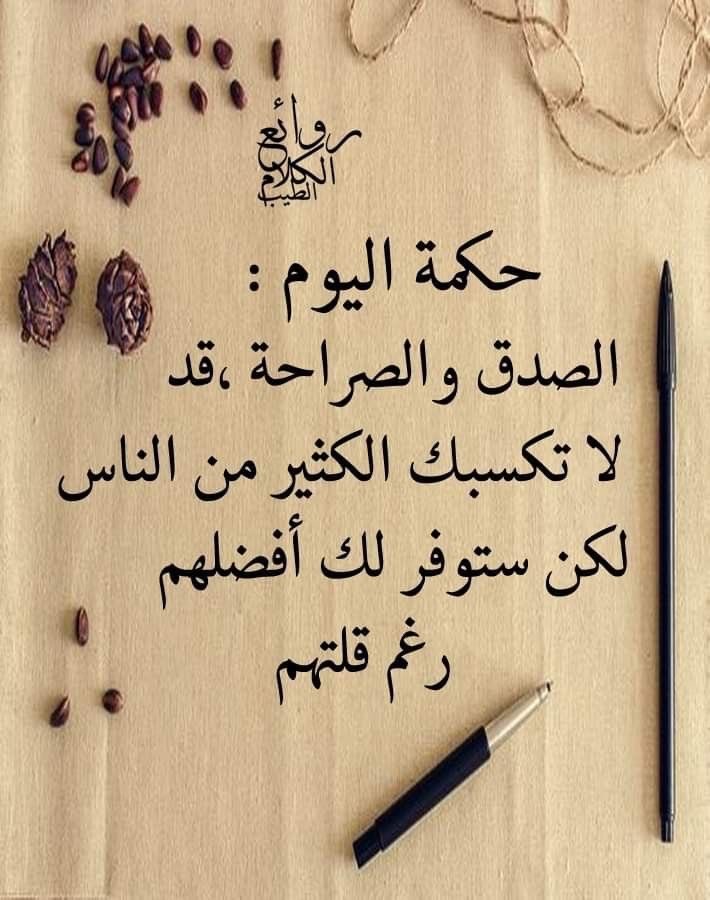 روائع
الكلام
الطيب
حكمة اليوم :
الصدق والصراحة ،قد
لا تكسبك الكثير من الناس
لكن ستوفر لك أفضلهم
رغم قلتهم